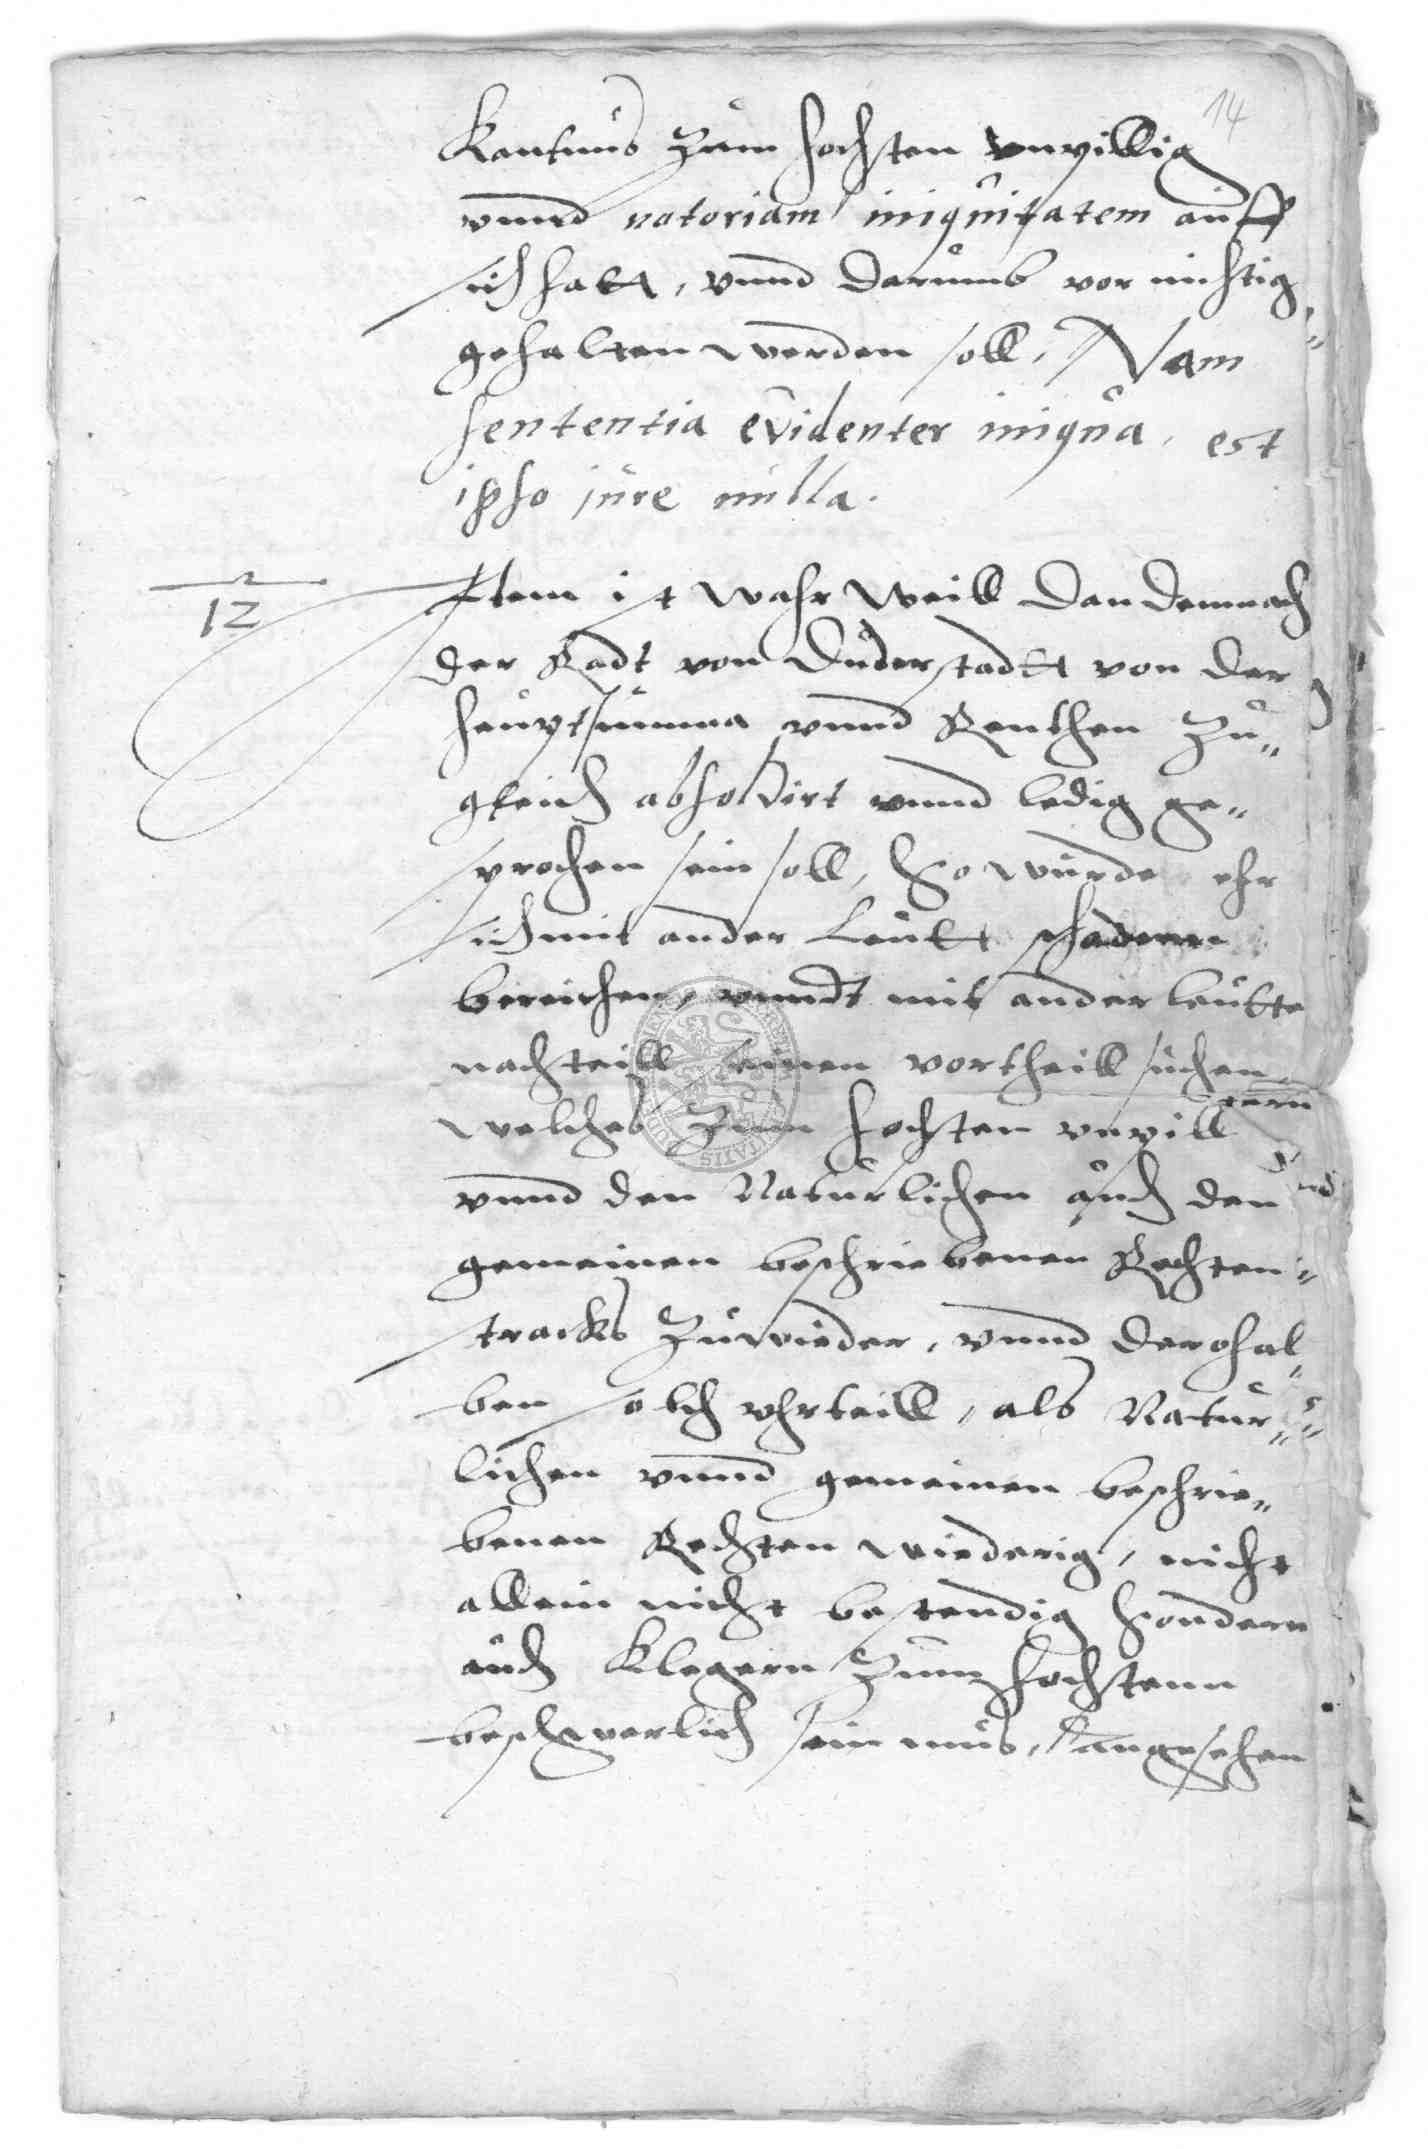 14
Kantnus zum hochsten vnpillig
vnnd notoriam iniquitatem auff
sich hatt, vnnd darumb vor nichtig
gehalten werden soll, Nam
sententia evidenter iniqua, est
ipso jure nulla.
12
Item ist wahr Weill dan demnach
der Radt von Duderstadtt von der
heuptsumma vnnd Renthen zu„
gleich absolvirt vnnd ledig ge„
sprochen sein soll, So wurde ehr
sich mit ander Leutt schadenn
bereichen, vnndt mit ander leutte
nachteill seinen vortheill suchen
welches zum hochsten vnpill
vnnd den Naturlichen auch den
gemeinen beschriebenen Rechten
stracks zuwieder, vnnd derohal„
ben solch vhrteill, als Natur„
lichen vnnd gemeinen beschrie„
benen Rechten wiederig, nicht
allein nicht bestendig sondern
auch Klegern zum hochstenn
beschwerlich sein mus, angesehen